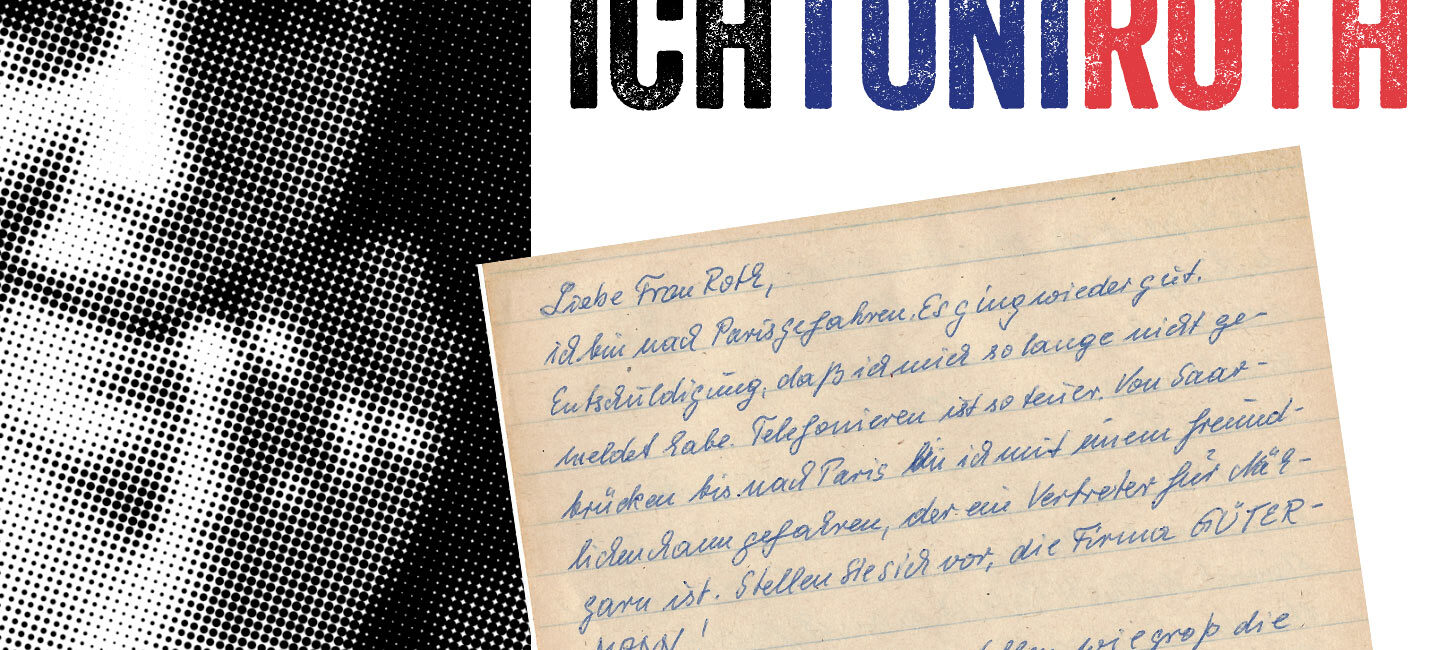 ICH TONI ROTH
Liebe Frau Roth,
ich bin nach Paris gefahren. Es ging wieder gut.
Entschuldigung, daß ich mich so lange nicht ge-
meldet habe. Telefonieren ist so teuer. Von Saar-
brücken bis nach Paris bin ich mit einem freund-
lichen Mann gefahren, der ein Vertreter für Näh-
garn ist. Stellen Sie sich vor, die Firma GÜTER-
MANN!
wie groß die